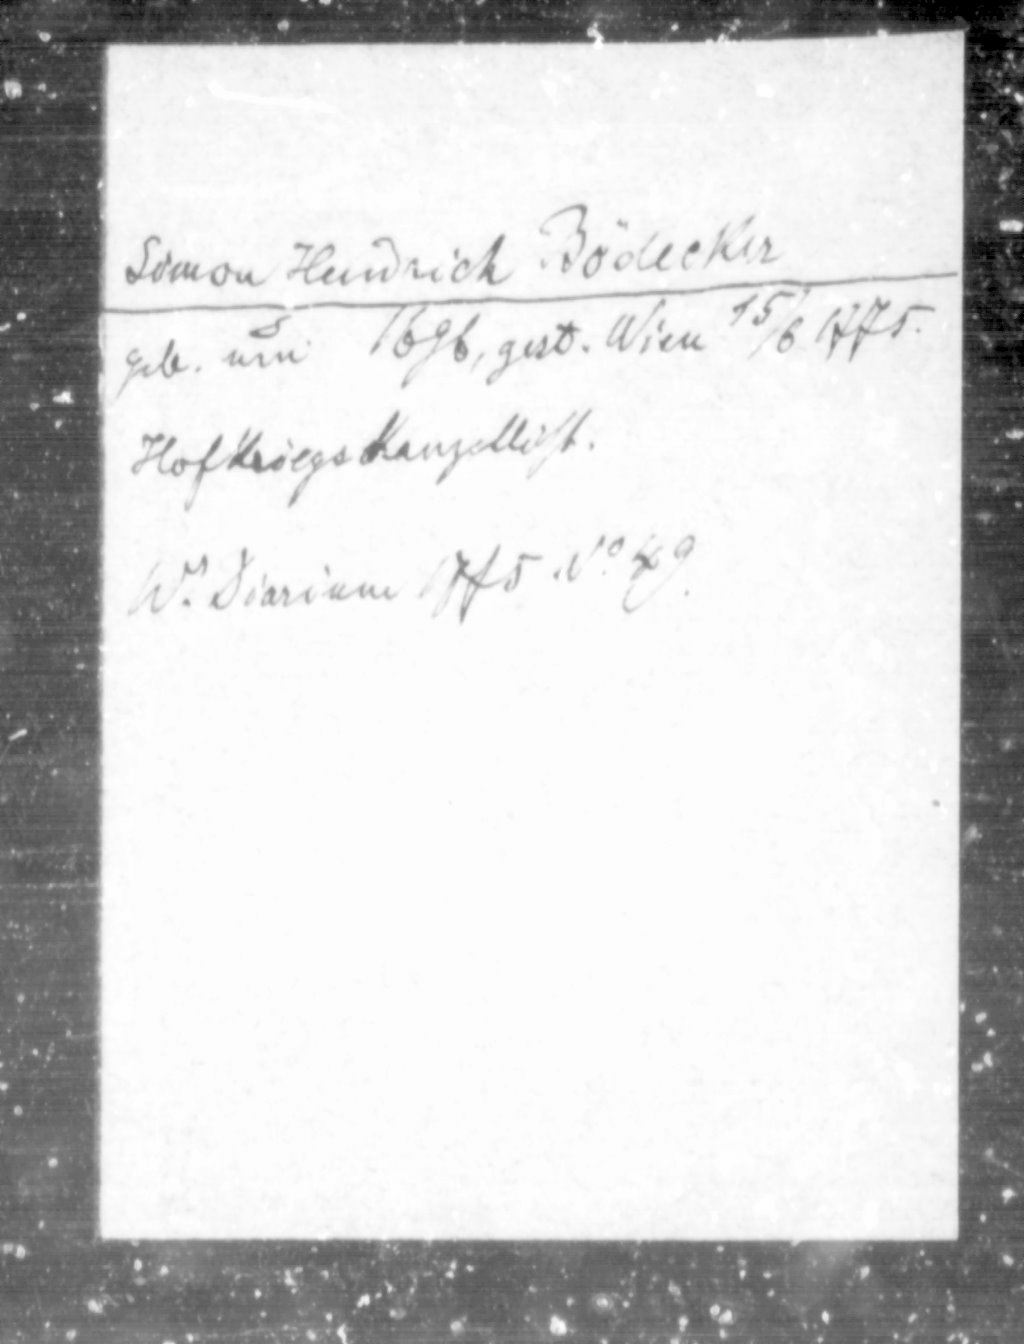 Simon Heinrich Bödecker
geb. um 1696, gest. Wien 15/6 1775.
Hofkriegskanzellist.
Wr. Diarium 1775 No 49.